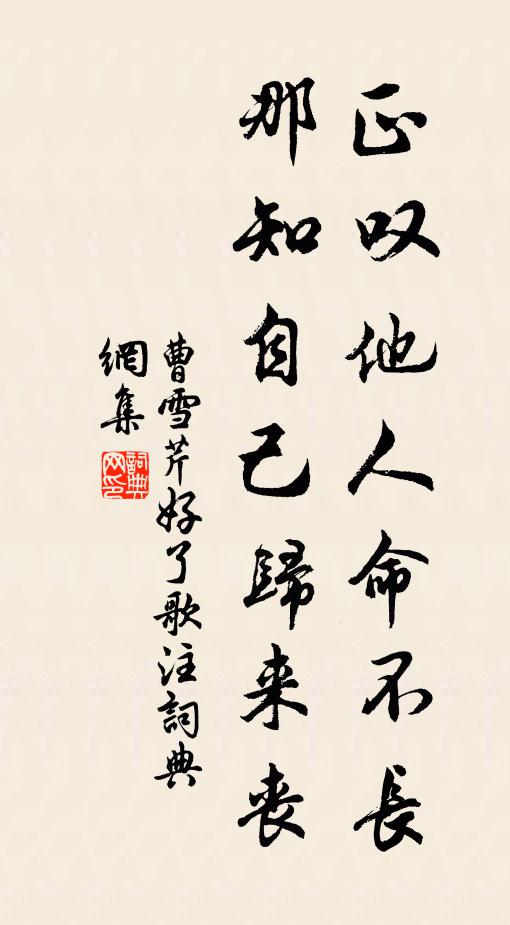 正叹他人命不長
那知自己歸来丧
曹雪芹好了歌注詞典
網集
詞典网印